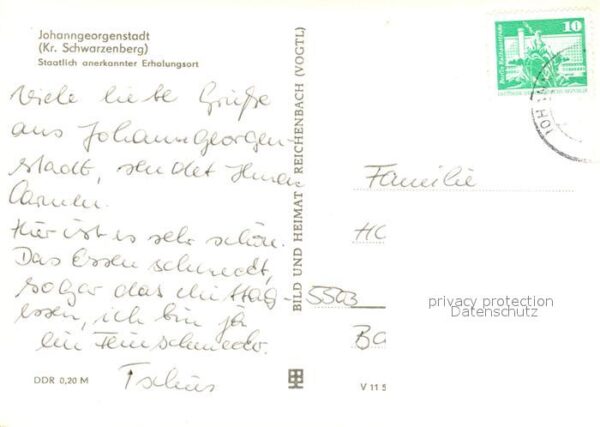 Johanngeorgenstadt
(Kr. Schwarzenberg)
Staatlich anerkannter Erholungsort
Viele liebe Grüße
aus Johanngeorgen-
stadt, sendet Ihnen
Carmen.
Hier ist es sehr schön.
Das Essen schmeckt,
sogar das Mittag-
essen, ich bin ja
ein Feinschmecker.
Tschüs
DDR 0,20 M
BILD UND HEIMAT REICHENBACH (VOGTL)
V 11 5
10
DEUTSCHE DEMOKRATISCHE REPUBLIK
JOH
Familie
HO
5503
Ba
privacy protection
Datenschutz